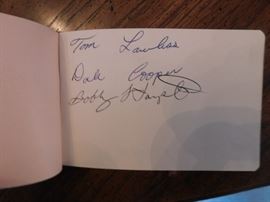 Tom Lawless
Dale Cooper
Bobby